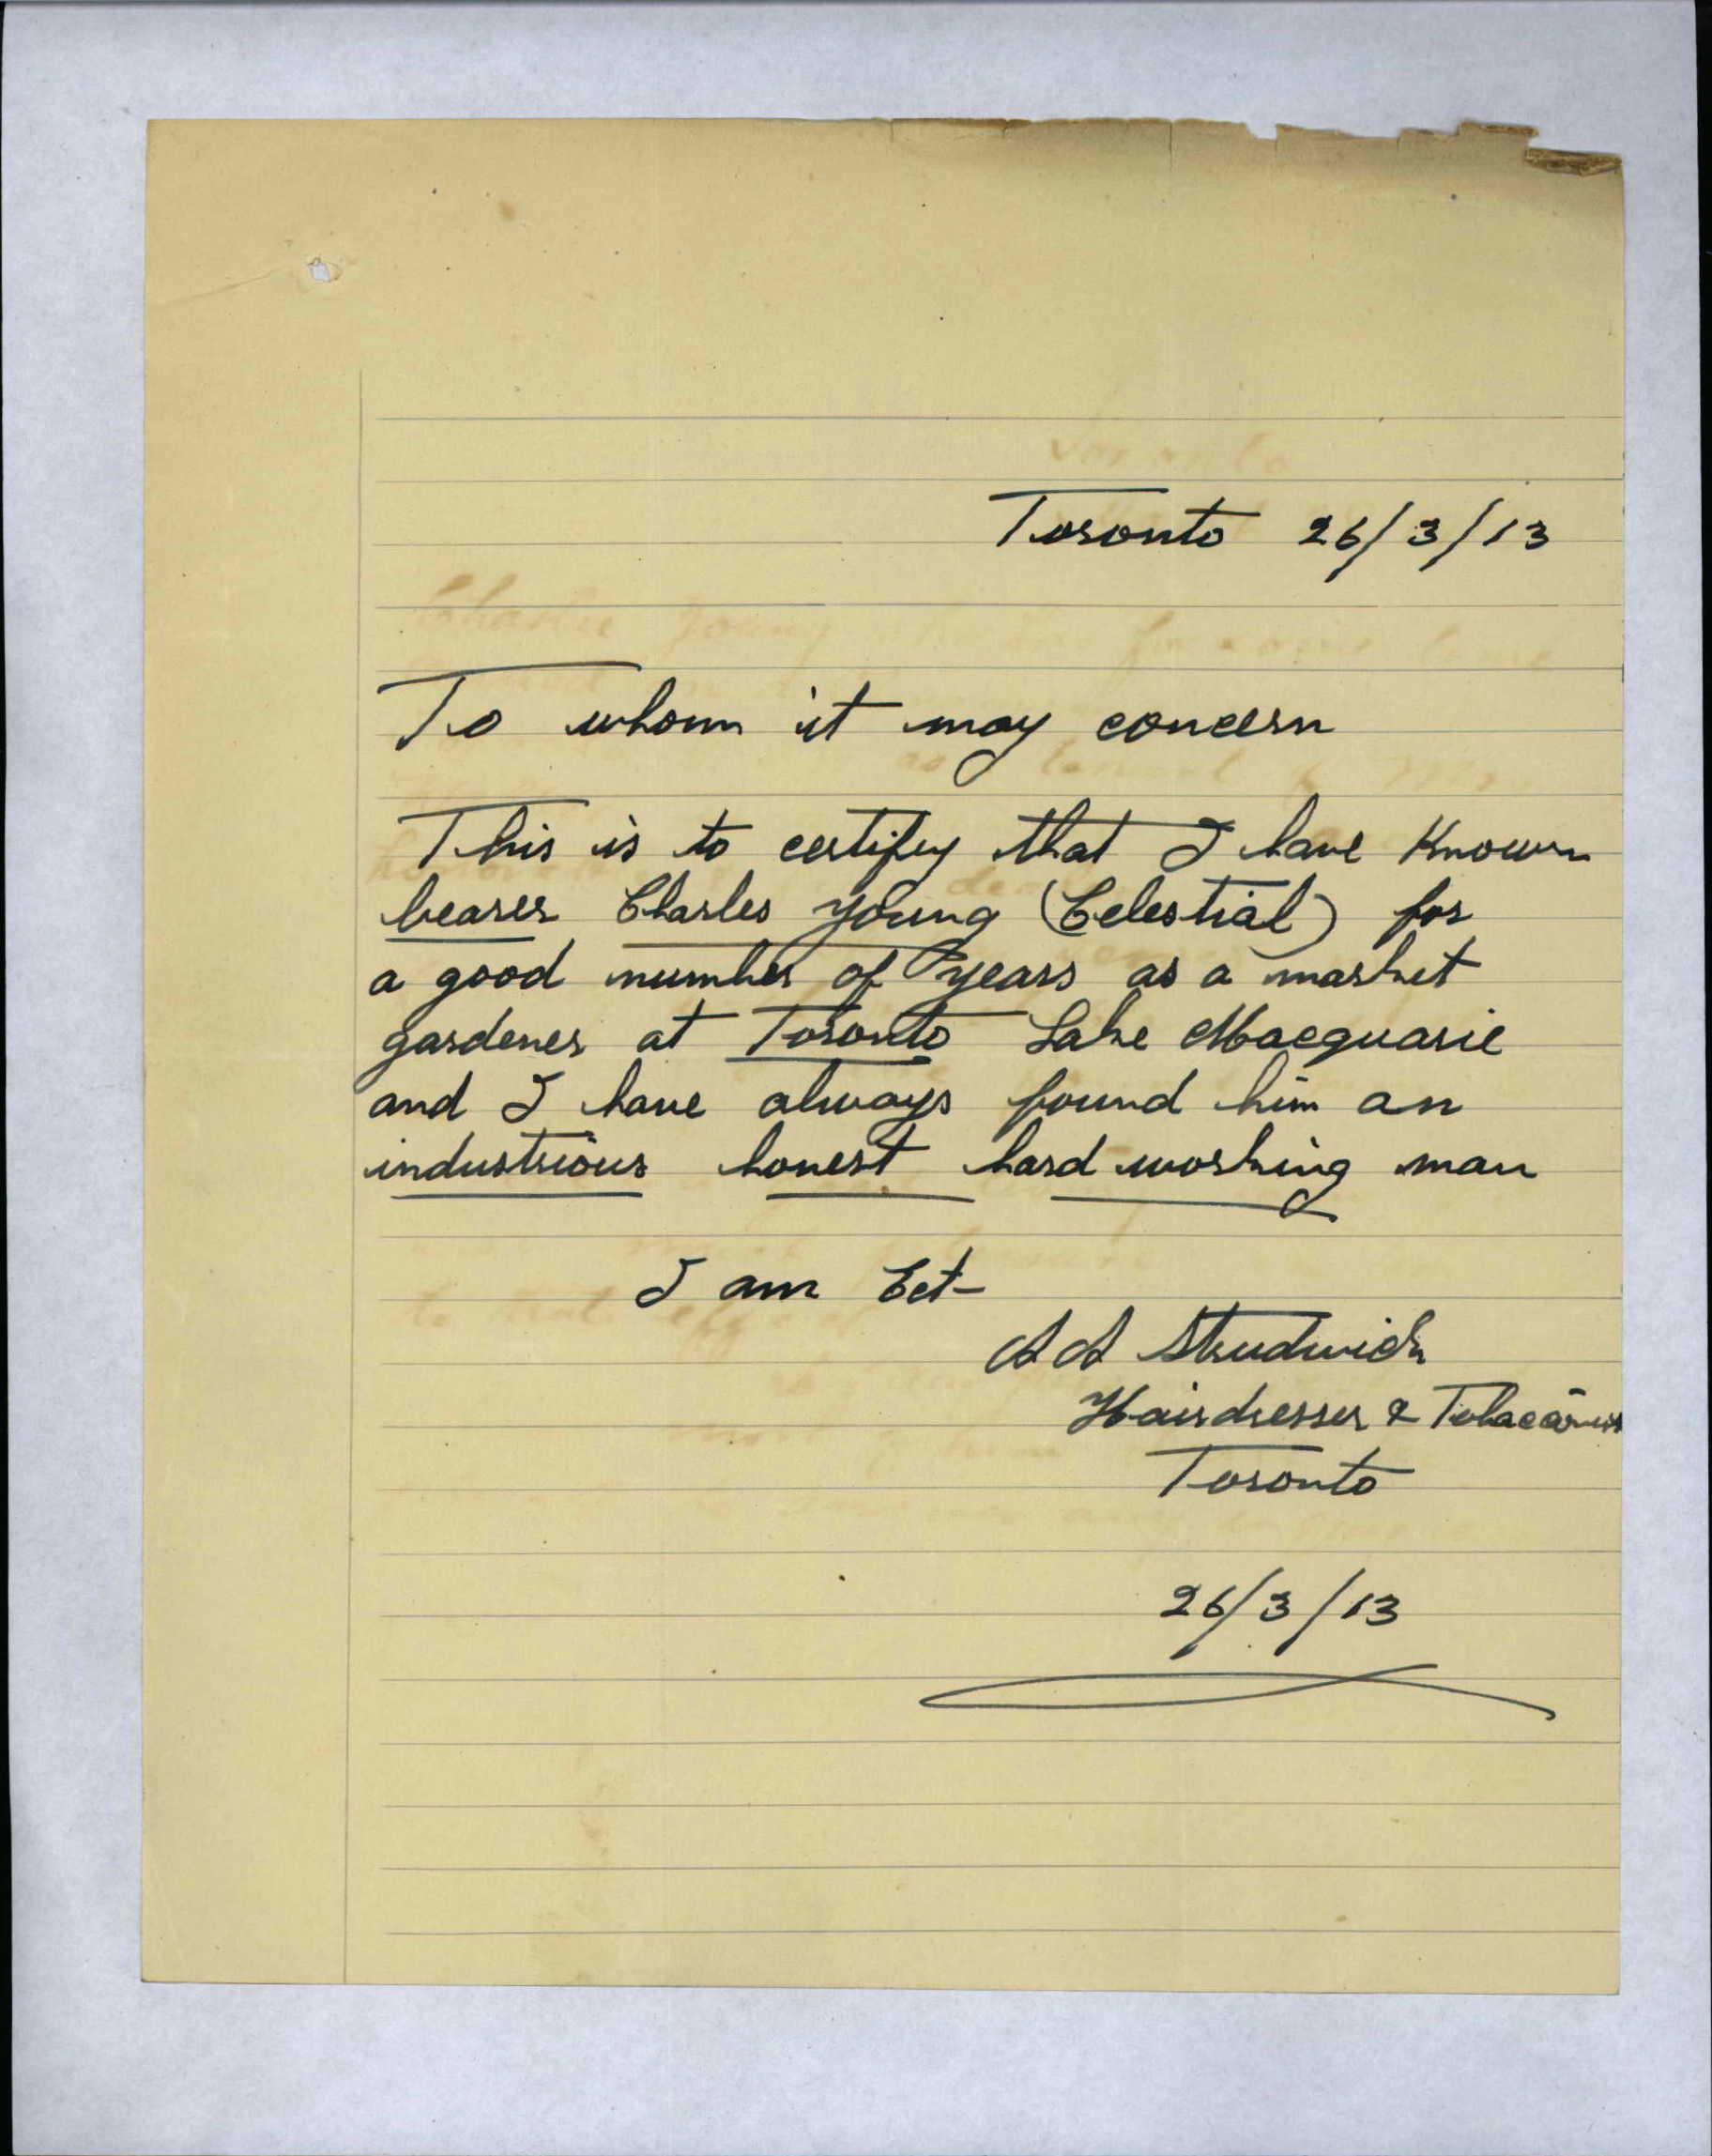 Toronto 26/3/13
To whom it may concern
This is to certify that I have Known
bearer Charles Young (Celestial) for
a good number of years as a market
gardener at Toronto Lake Macquarie
and I have always found him an
industrious honest hard working man
I am Ect-
A A Strudwick
Hairdresser & Tobaconist
Toronto
26/3/13